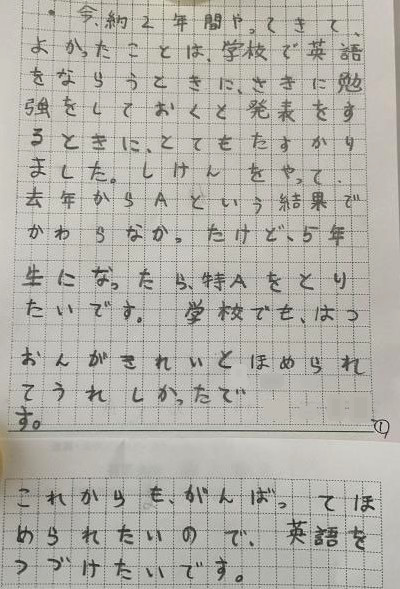 ・今、約2年間やってきて、
よかったことは、学校で英語
をならうときに、さきに勉
強をしておくと発表をす
るときに、とてもたすかり
ました。しけんをやって、
去年からAという結果で
かわらなかったけど、5年
生になったら、特Aをとり
たいです。 学校でも、はつ
おんがきれいとほめられ
てうれしかったで
す。
①
これからも、がんばってほ
められたいので、英語を
つづけたいです。